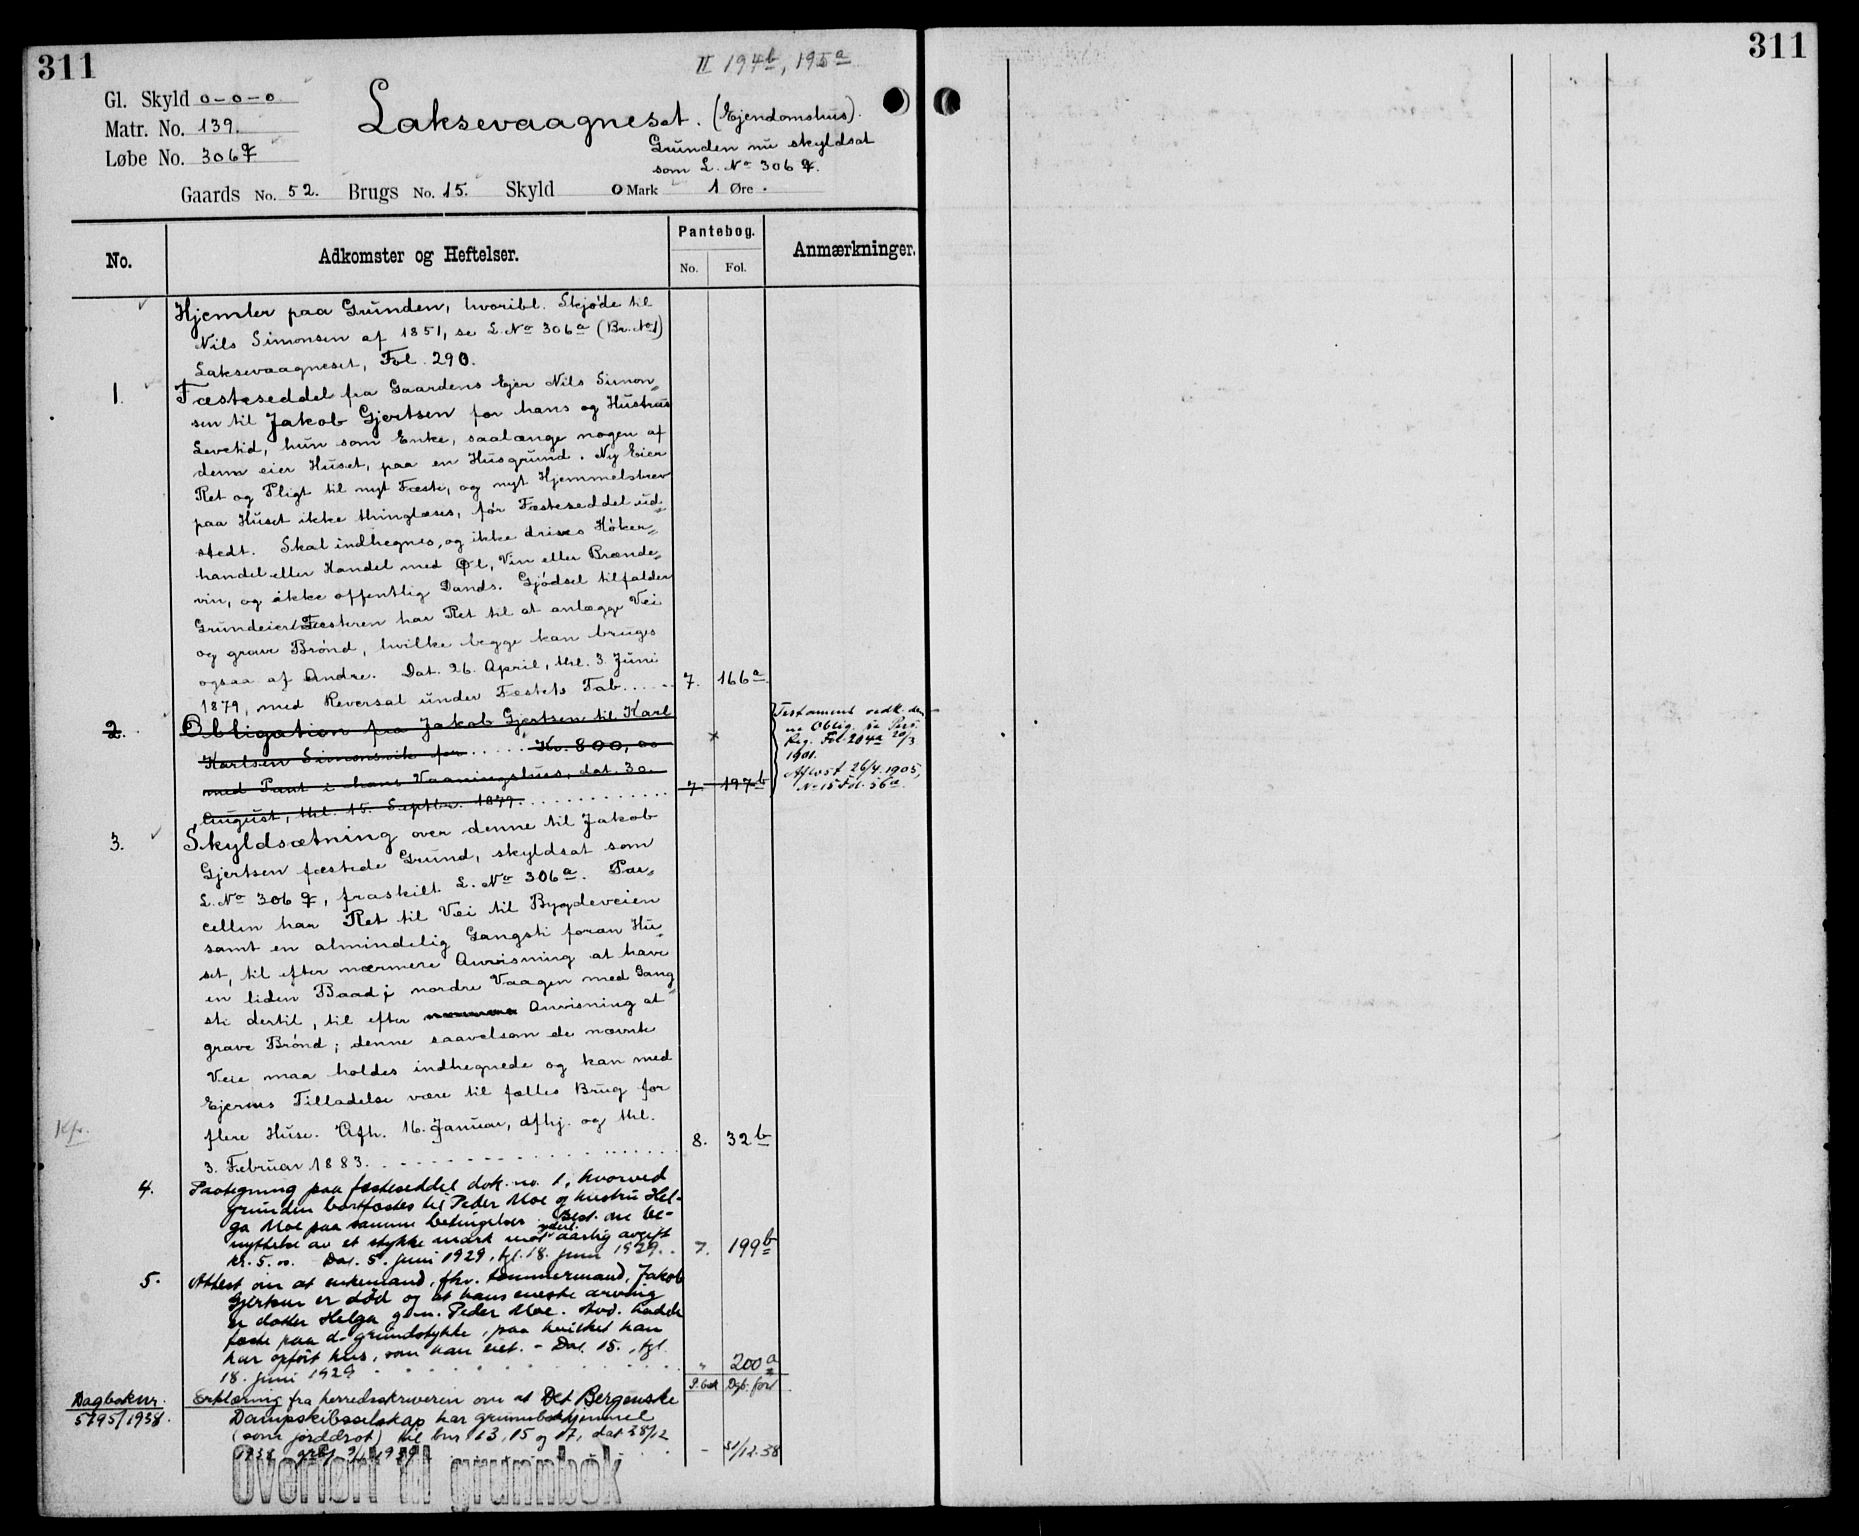 311
311
II 194b, 195a
Gl. Skyld 0-0-0
Matr. No. 139.
Løbe No. 306q
Laksevaagneset. (Ejendomshus).
Grunden nu skyldsat
som L. No 306 q.
Gaards No. 52. Brugs No. 15. Skyld 0 Mark 1 Øre.
No. Adkomster og Heftelser. Pantebog. No. Fol. Anmærkninger.
Hjemler paa Grunden, hvoribl. Skjøde til
Nils Simonsen af 1851, se L. No 306a (Br. No 1)
Laksevaagneset, Fol. 290.
1. Fæsteseddel fra Gaardens Ejer Nils Simon-
sen til Jakob Gjertsen for hans og Hustrus
Levetid, hun som Enke, saalænge nogen af
dem eier Huset, paa en Husgrund. Ny Eier
Ret og Pligt til nyt Fæste, og nyt Hjemmelsbrev
paa Huset ikke thinglæses, før Fæsteseddel ud-
stedt. Skal indhegnes, og ikke drives Høker-
handel eller Handel med Øl, Vin eller Brænde-
vin, og ikke offentlig Dands. Gjødsel tilfalder
Grundeier. Fæsteren har Ret til at anlægge Vei
og grave Brønd, hvilke begge kan bruges
ogsaa af Andre. Dat. 26. April, thl. 3. Juni
1879, med Reversal under Fæstets Tab..... 7. 166a
2. Obligation fra Jakob Gjertsen til Karl
Karlsen Simonsvik for ..... Kr. 800,00
med Pant i hans Vaaningshus, dat. 30.
August, thl. 15. Septbr. 1879. 7. 197b
Testament vedk. den-
ne Oblig. se Pers.
Reg. Fol. 204a 20/3
1901.
Aflyst 26/4 1905,
No 15 Fol. 56a.
3. Skyldsætning over denne til Jakob
Gjertsen fæstede Grund, skyldsat som
L. No 306 q, fraskilt L. No 306a. Par-
cellen har Ret til Vei til Bygdeveien
samt en almindelig Gangsti foran Hu-
set, til efter nærmere Anvisning at have
en liden Baad i nordre Vaagen med Gang-
sti dertil, til efter nærmere Anvisning at
grave Brønd; denne saavelsom de nævnte
Veie maa holdes indhegnede og kan med
Ejernes Tilladelse være til fælles Brug for
flere Huse. Afh. 16. Januar, afhj. og thl.
3. Februar 1883. 8. 32b
Kfr.
4. Paategning paa fæsteseddel dok. no. 1, hvorved
grunden bortfæstes til Peder Moe og hustru Hel-
ga Moe paa samme betingelser. Best. om be-
nyttelse av et stykke mark mot yderl. aarlig avgift
kr. 5.00. Dat. 5. juni 1929, tgl. 18. juni 1929. 7. 199b
5. Attest om at enkemand, fhv. tømmermand, Jakob
Gjertsen er død og at hans eneste arving
er datter Helga gm. Peder Moe. Avd. hadde
fæste paa d. grundstykke, paa hvilket han
har opført hus, som han eiet. - Dat. 15., tgl.
18. juni 1929 " 200a
P.bok Dgb. ført
Dagboknr.
5195/1938.
Erklæring fra herredsskriveren om at Det Bergenske
Dampskibsselskap har grunnbokhjemmel
(som jorddrot) til bnr 13, 15 og 17, dat 28/12
1938 - 31/12.38
Overført til grunnbok